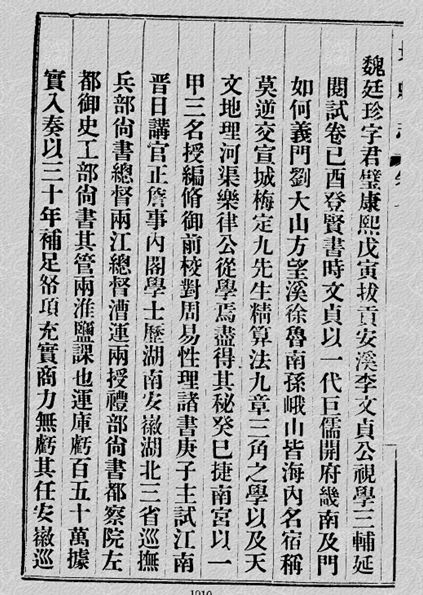 魏廷珍字君璧康熙戊寅拔貢安溪李文貞公視學三輔延
閱試卷己酉登賢書時文貞以一代巨儒開府畿南及門
如何義門劉大山方望溪徐魯南孫峨山皆海內名宿稱
莫逆交宣城梅定九先生精算法九章三角之學以及天
文地理河渠樂律公從學焉盡得其秘癸巳捷南宮以一
甲三名授編脩御前校對周易性理諸書庚子主試江南
晋日講官正詹事內閣學士歷湖南安徽湖北三省巡撫
兵部尚書總督兩江總督漕運兩授禮部尚書都察院左
都御史工部尚書其管兩淮鹽課也運庫虧百五十萬據
實入奏以三十年補足帑項充實商力無虧其任安徽巡
1010